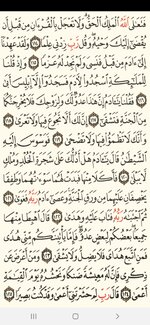 فَتَعَٰلَى ٱللَّهُ ٱلْمَلِكُ ٱلْحَقُّ وَلَا تَعْجَلْ بِٱلْقُرْءَانِ مِن قَبْلِ أَن
يُقْضَىٰٓ إِلَيْكَ وَحْيُهُۥ وَقُل رَّبِّ زِدْنِى عِلْمًا ١١٤ وَلَقَدْ عَهِدْنَآ
إِلَىٰٓ ءَادَمَ مِن قَبْلُ فَنَسِىَ وَلَمْ نَجِدْ لَهُۥ عَزْمًا ١١٥ وَإِذْ قُلْنَا
لِلْمَلَٰٓئِكَةِ ٱسْجُدُوا۟ لِـَٔادَمَ فَسَجَدُوٓا۟ إِلَّآ إِبْلِيسَ أَبَىٰ
١١٦ فَقُلْنَا يَٰٓـَٔادَمُ إِنَّ هَٰذَا عَدُوٌّ لَّكَ وَلِزَوْجِكَ فَلَا يُخْرِجَنَّكُمَا
مِنَ ٱلْجَنَّةِ فَتَشْقَىٰٓ ١١٧ إِنَّ لَكَ أَلَّا تَجُوعَ فِيهَا وَلَا تَعْرَىٰ
١١٨ وَأَنَّكَ لَا تَظْمَؤُا۟ فِيهَا وَلَا تَضْحَىٰ ١١٩ فَوَسْوَسَ إِلَيْهِ
ٱلشَّيْطَٰنُ قَالَ يَٰٓـَٔادَمُ هَلْ أَدُلُّكَ عَلَىٰ شَجَرَةِ ٱلْخُلْدِ وَمُلْكٍ
لَّا يَبْلَىٰ ١٢٠ فَأَكَلَا مِنْهَا فَبَدَتْ لَهُمَا سَوْءَٰتُهُمَا وَطَفِقَا
يَخْصِفَانِ عَلَيْهِمَا مِن وَرَقِ ٱلْجَنَّةِ وَعَصَىٰٓ ءَادَمُ رَبَّهُۥ فَغَوَىٰ ١٢١
ثُمَّ ٱجْتَبَٰهُ رَبُّهُۥ فَتَابَ عَلَيْهِ وَهَدَىٰ ١٢٢ قَالَ ٱهْبِطَا مِنْهَا
جَمِيعًۢا بَعْضُكُمْ لِبَعْضٍ عَدُوٌّ فَإِمَّا يَأْتِيَنَّكُم مِّنِّى هُدًى
فَمَنِ ٱتَّبَعَ هُدَاىَ فَلَا يَضِلُّ وَلَا يَشْقَىٰ ١٢٣ وَمَنْ أَعْرَضَ عَن
ذِكْرِى فَإِنَّ لَهُۥ مَعِيشَةً ضَنكًا وَنَحْشُرُهُۥ يَوْمَ ٱلْقِيَٰمَةِ
أَعْمَىٰ ١٢٤ قَالَ رَبِّ لِمَ حَشَرْتَنِىٓ أَعْمَىٰ وَقَدْ كُنتُ بَصِيرًا ١٢٥